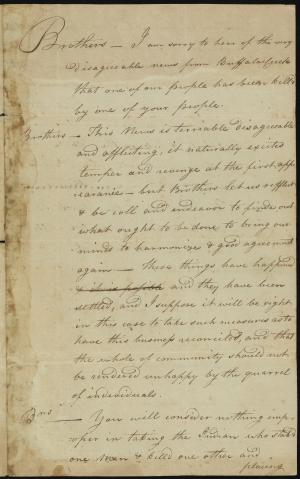 Brothers — I am sorry to hear of the very
disagreeable news from Buffalo Creek
that one of our people has been kill'd
by one of your people.
Brothers — This News is terriable disagreeable
and afflicting, it naturally exited
temper and revenge at the first app
earance — but Brothers let us reflect
& be coll and endeavor to finde out
what ought to be done to bring our
mind to harmonize & good agreement
again — These things have happend
& it is and they have been
settled, and I suppose it will be right
in this case to take such measures as to
have this business reconciled, and that
the whole of community should not
be rendered unhappy by the quarrel
of individuals.
Brs — You will consider nothing imp
roper in taking the Indian who stab'd
one man & killed one other and
placing